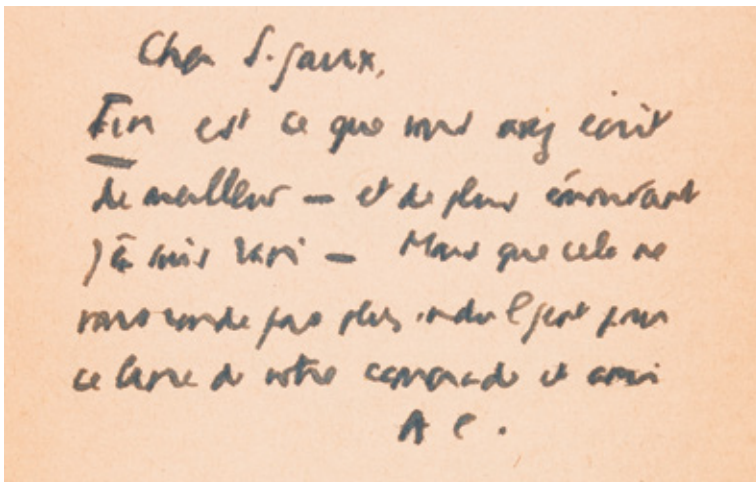 Cher S. gaux,
Fin est ce que vous avez écrit
de meilleur — et de plus émouvant
j'en suis ravi — Mais que cela ne
vous rende pas plus indulgent pour
ce livre de votre camarade et ami
A C.